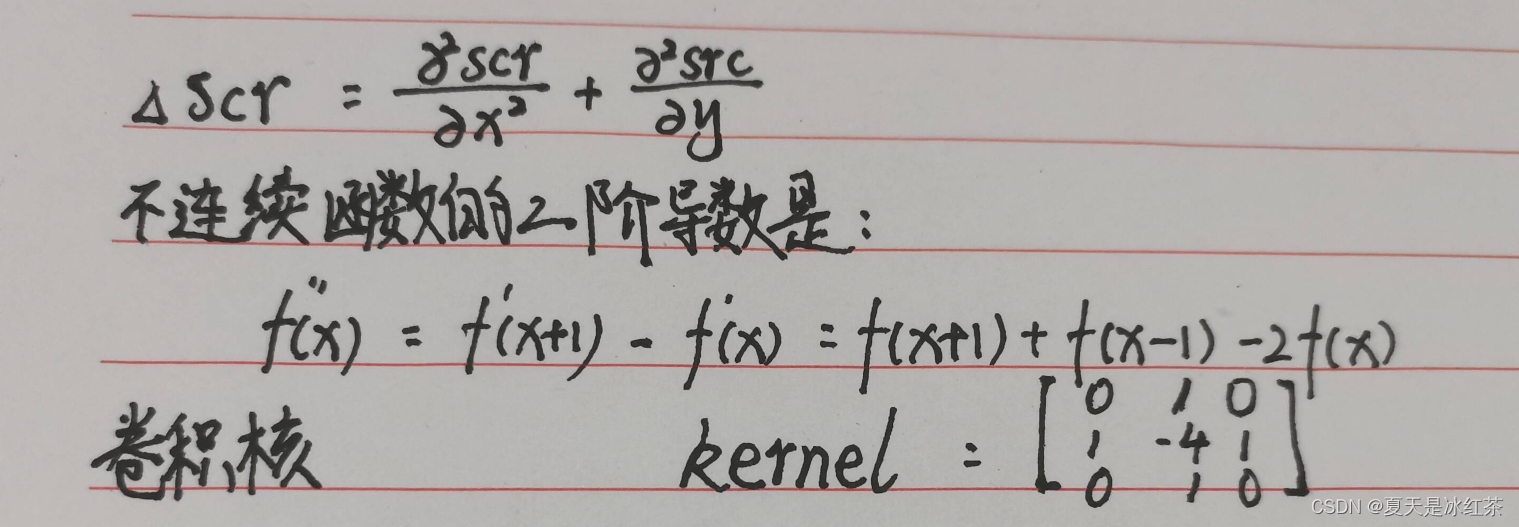 Δ Scr = ∂²scr/∂x² + ∂²src/∂y
不连续函数的二阶导数是:
f''(x) = f'(x+1) - f'(x) = f(x+1) + f(x-1) -2f(x)
卷积核 kernel = [0 1 0
1 -4 1
0 1 0]
CSDN @夏天是冰红茶